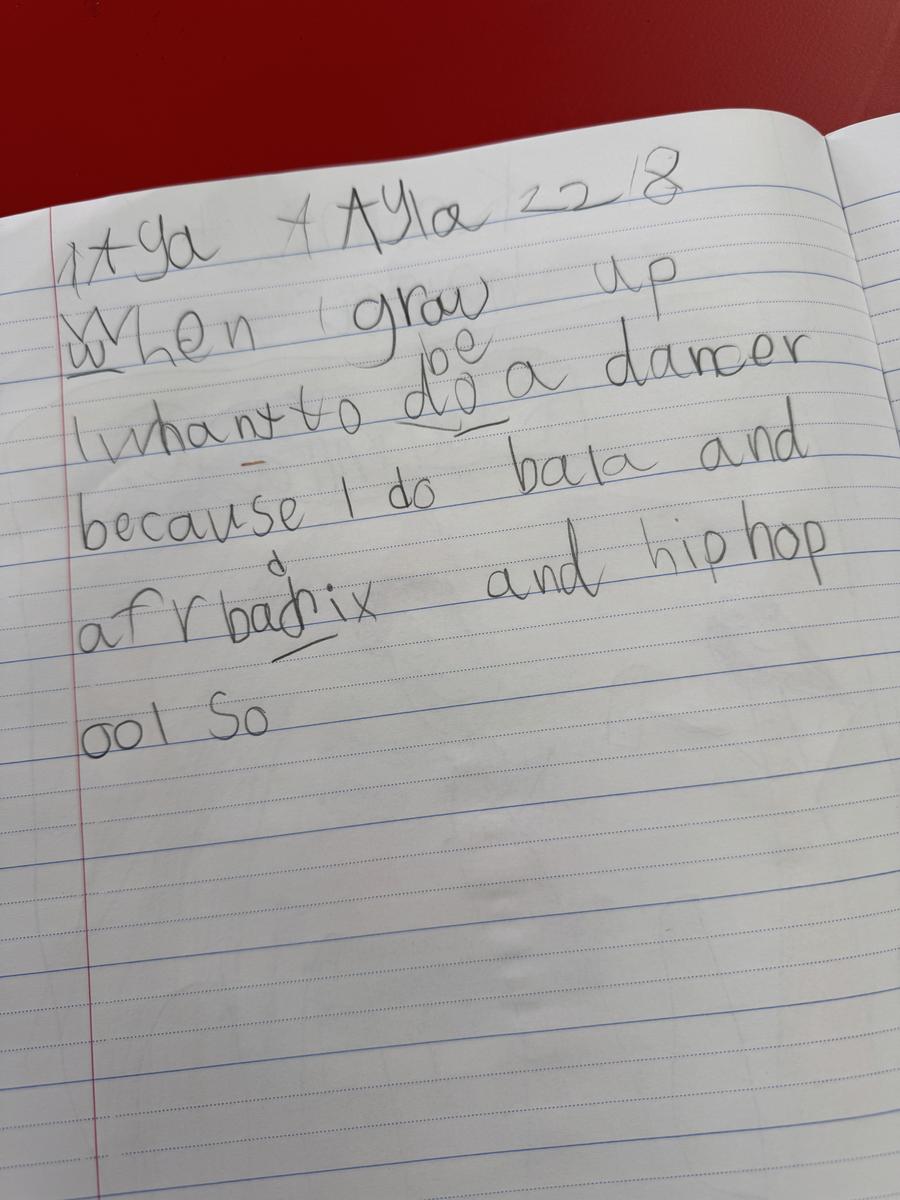 Aya A Ayla 22 18
When I grow up
I whant to do be a dancer
because I do bala and
afrbadix and hip hop
ool so